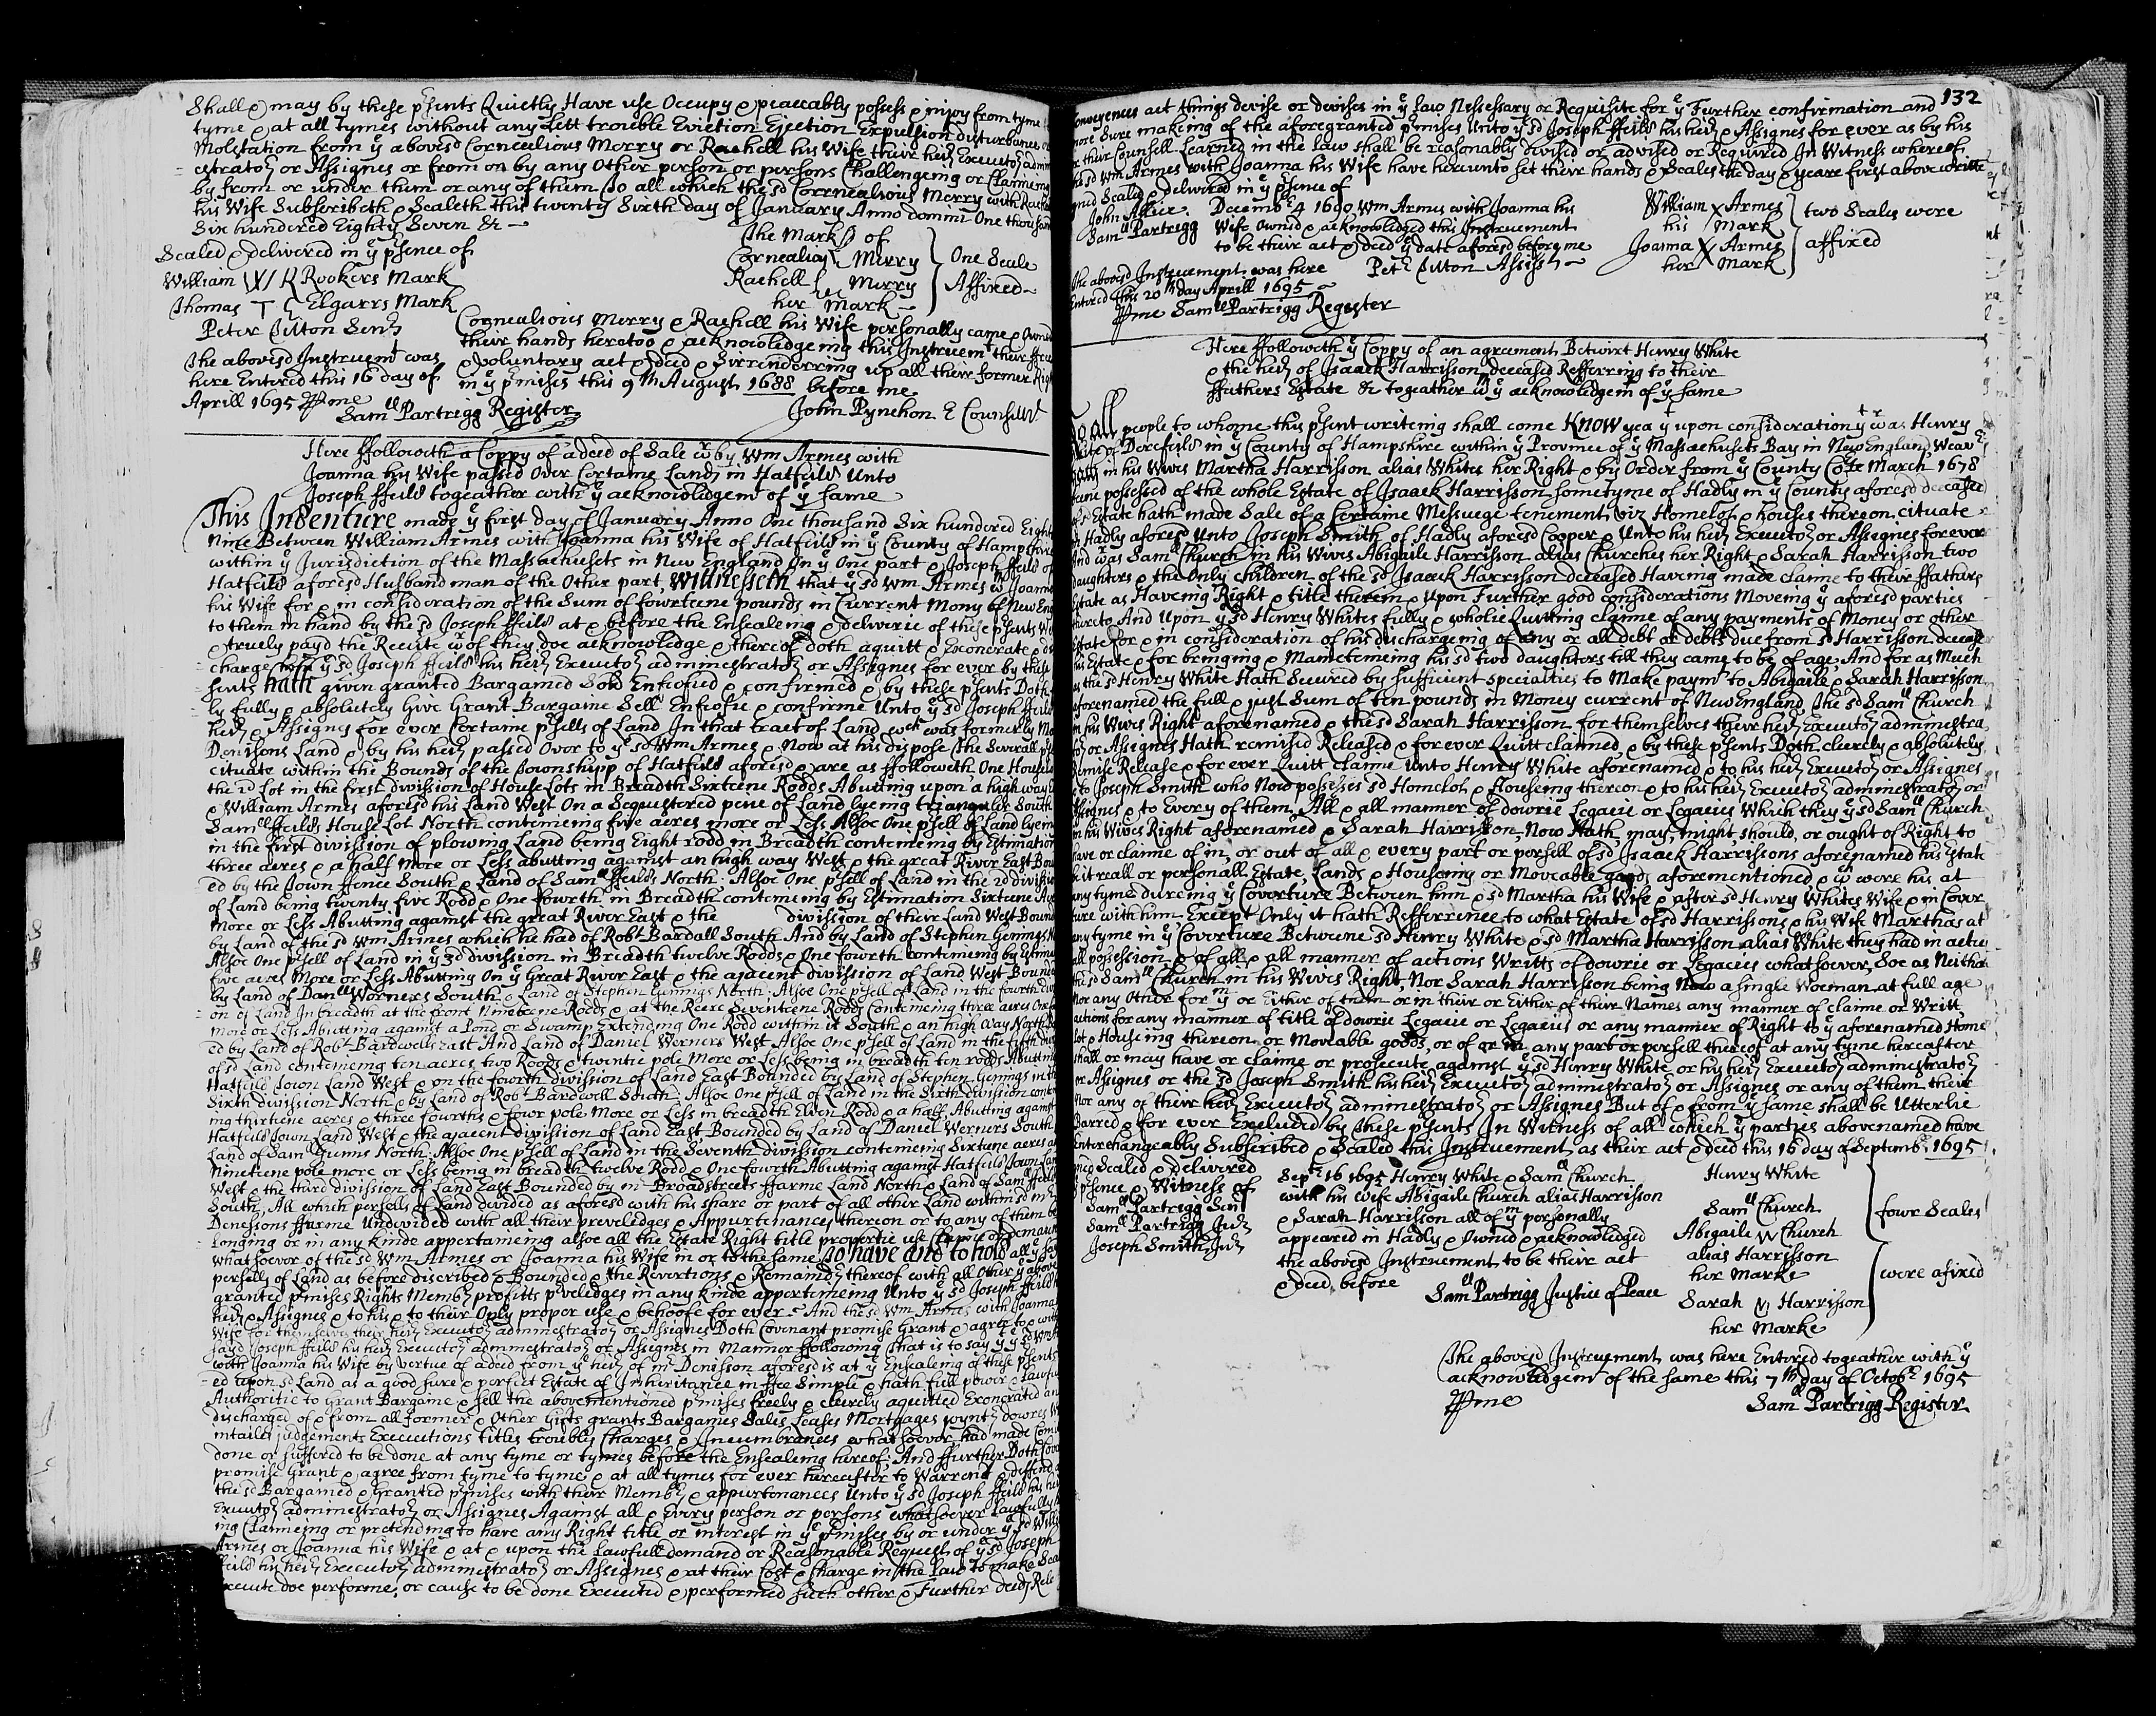 Shall & may by these psents Quietly Have use Occupy & peaceably possess & injoy from tyme
tyme & at all tymes without any Lett trouble Eviction Ejection Expulsion disturbance
Molestation from ye abovesd Cornealious Merry or Rachell his Wife their heirs Executors admin
estrators or Assignes or from or by any Other person or persons Challengeing or Claimeing
by from or under them or any of them To all which the sd Cornealious Merry with Rachell
his Wife Subscribeth & Sealeth this twenty Sixth day of January Anno dommi One thousand
Six hundred Eighty Seven &c
Sealed & delivered in ye psence of
William W R Rookers Mark
Thomas T E Elgarrs Mark
Peter Tilton Senr
The Mark of
Cornealious Merry
Rachell Merry
her Mark
One Seale
Affixed
The abovesd Instruemt was
here Entered this 16 day of
Aprill 1695 Pr me
Samll Partrigg Register
Cornealious Merry & Rachell his Wife personally came & Owned
their hands heretoo & acknowledgeing this Instruemt their free
& voluntary act & deed & Surrenderring up all their former Right
in ye pmises this 9th August 1688 before me
John Pynchon of Counsill
Here ffolloweth a Coppy of a deed of Sale wr by Wm Armes with
Joanna his Wife passed Over Certaine Lands in Hatfeild Unto
Joseph ffeild togeather with ye acknowledgemt of ye same
This Indenture made ye first day of January Anno One thousand Six hundred Eighty
Nine Between William Armes with Joanna his Wife of Hatfeild in ye County of Hampshire
within ye Jurisdiction of the Massachusets in New England On ye One part & Joseph ffeild of
Hatfeild aforesd Husbandman of the Other part, Wittnesseth that ye sd Wm Armes wth Joanna
his Wife for & in consideration of the Sum of fowrteene pounds in Current Mony of New Eng
to them in hand by the sd Joseph ffeild at & before the Ensealeing & deliverie of these psents
& truely payd the Receite wr of they doe acknowledge & thereof doth aquitt & Exonerate & dis
charge ye sd Joseph ffeild his heirs Executors administrators or Assignes for ever by these
sents hath given granted Bargained Sold Enfeofied & confirmed & by these psents Doth
ly fully & absolutely Give Grant Bargaine Sell Enfeofie & confirme Unto ye sd Joseph ffeild
heirs & Assignes for ever Certaine psells of Land In that tract of Land wch was formerly Mr
Denisons Land & by his heirs passed Over to ye sd Wm Armes & Now at his dispose The Severall
cituate within the Bounds of the Townshipp of Hatfeild aforesd & are as ffolloweth One House
the 2d Lot in the first division of House Lots in Breadth Sixteene Rodds Abutting upon a high way
& William Armes aforesd his Land West On a Sequestered peice of Land lyeing triangular South
Samll ffeilds House Lot North conteineing five acres more or Less Allsoe One psell of Land lyeing
in the first division of plowing Land being Eight rodd in Breadth conteineing by Estimation
three acres & a half More or Less abutting against an high way West & the great River East Bound
ed by the Town ffence South & Land of Samll ffeilds North: Allsoe One psell of Land in the 2d division
of Land being twenty five Rodd & One fourth in Breadth conteineing by Estimation Sixteene
more or Less Abutting against the great River East & the division of their Land West Bound
by Land of the sd Wm Armes which he had of Robt Bardall South And by Land of Stephen Genings
Allsoe One psell of Land in ye 3d division in Breadth twelve Rodds & One fourth conteineing by Estima
five acres More or Less Abutting On ye Great River East & the ajacent division of Land West Bounded
by Land of Danll Worners South & Land of Stephen Gennings North: Allsoe One psell of Land in the fourth divi
on of Land In breadth at the front Nineteene Rodds & at the Reere Seventeene Rodds Conteineing three acres One
more or Less Abutting against a Pond or Swamp Extending One Rodd within it South & an high Way North
ed by Land of Robt Bardwells East And Land of Daniel Worners West Allsoe One psell of Land in the fifth divi
of sd Land conteineing ten acres two Roods & twentie pole More or Less being in breadth ten rodds Abutting
Hatfeild Town Land West & on the fourth division of Land East Bounded by Land of Stephen Genings in the
Sixth division North & by Land of Robt Bardwell South: Allsoe One psell of Land in the Sixth division contei
ing thirtiene acres & three fourths & fowr pole More or Less in breadth Elven Rodd & a half Abutting against
Hatfeild Town Land West & the ajacent division of Land East Bounded by Land of Daniel Worners South
Land of Sam Gunns North: Allsoe One psell of Land in the Seventh division conteineing Sixteene acres
Nineteene pole more or Less being in breadth twelve Rodd & One fourth Abutting against Hatfeild Town Land
West & the third division of Land East Bounded by mr Broadstreets ffarme Land North & Land of Samll ffeild
South, All which persells of Land divided as aforesd with his share or part of all other Land within sd mr
Denessons ffarme Undevided with all their preveledges & Appurtenances thereon or to any of them be
longing or in any kinde appertaineing alsoe all the Estate Right title propertie use Claime & demaund
whatsoever of the sd Wm Armes or Joanna his Wife in or to the same To have and to hold all ye
persells of Land as before discribed & Bounded & the Revertions & Remaindrs thereof with all Other ye above
granted pmises Rights Membrs profitts pveledges in any kinde apperteineing Unto ye sd Joseph ffeild
heirs & Assignes & to his & to their Only proper use & behoofe for ever And the sd Wm Armes with Joanna
Wife for themselves their heirs Executors administrators or Assignes Doth Covenant promise Grant & agree to & with
sayd Joseph ffeild his heirs Executors administrators or Assignes in Manner ffollowing That is to say yt ye sd Wm
with Joanna his Wife by vertue of a deed from ye heirs of mr Denisson aforesd is at ye Ensealeing of these psents
ed upon sd Land as a good sure & perfect Estate of Inheritance in ffee Simple & hath full power & Lawfull
Authoritie to Grant Bargaine & sell the abovementioned pmises freely & cleerly aquitted Exonrated and
discharged of & from all former & Other Gifts grants Bargaines Sales Leases Mortgages Joynts dowres
intailes judgements Executions titles troubles Charges & Incumbrances whatsoever had made Com
done or suffered to be done at any tyme or tymes before the Ensealeing hereof; And ffurther Doth Cove
promise Grant & agree from tyme to tyme & at all tymes for ever hereafter to Warrent & deffend
the sd Bargained & Granted pmises with their Membrs & appurtenances Unto ye sd Joseph ffeild his heirs
Executors administrators or Assignes Against all & Every person or persons whatsoever Lawfully
ing Claimeing or pretending to have any Right title or interest in ye pmises by or under ye sd Willi
Armes or Joanna his Wife & at & upon the Lawfull demand or Reasonable Request of ye sd Joseph
ffeild his heirs Executors administrators or Assignes & at their Cost & Charge in the Law to make Seal
Execute doe performe, or cause to be done Executed & performed such other & Further deeds Rele
132
Conveyences act things devise or devises in ye Law Nessessary or Requisite for ye Further confirmation and
more Sure making of the aforegranted pmises Unto ye sd Joseph ffeild his heirs & Assignes for ever as by his
or their Counsell Learned in the Law shall be reasonably devised or advised or Required In Witness whereof
the sd Wm Armes with Joanna his Wife have hereunto set their hands & Seales the day & yeare first above written
Signed Sealed & delivered in ye psence of
John Allice
Samll Partrigg
Decembr 4 1690 Wm Armes with Joanna his
Wife Owned & acknowledged this Instruement
to be their act & deed ye date aforesd before me
Petr Tilton Assist
William X Armes
his Mark
Joanna X Armes
her Mark
two Seales were
affixed
The abovesd Instruement was here
Entered this 20th day Aprill 1695
Pr me Samll Partrigg Register
Here ffolloweth ye Coppy of an agreement Betwixt Henry White
& the heirs of Isaack Harrisson deceased Refferring to their
ffathers Estate &c togeather wth ye acknowledgemt of ye same
To all people to whome this psent writeing shall come Know yea yt upon consideration yt wras Henry
White of Dereefeild in ye County of Hampshire within ye Province of ye Massachusets Bay in New England, Wear
in his Wives Martha Harrisson alias Whites her Right & by Order from ye County Corte March 1678
came possessed of the whole Estate of Isaack Harrisson sometyme of Hadly in ye County aforesd deceased
of sd Estate hath made Sale of a Certaine Messuege tenement viz Homelot & houses thereon cituate
in Hadly aforesd Unto Joseph Smith of Hadly aforesd Cooper & Unto his heirs Executors or Assignes for ever
And wras Samll Church in his Wives Abigaile Harrisson alias Churches her Right & Sarah Harrisson two
daughters & the Only children of the sd Isaack Harrisson deceased Haveing made claime to their ffathers
Estate as Haveing Right & title therein & upon Further good considerations Moveing ye aforesd parties
thereto And Upon ye sd Henry Whites fully & wholie Quitting claime of any payments of Money or other
Estate for & in consideration of his discharging of any or all debt or debts due from sd Harrisson deceased
his Estate & for bringing & Mainteineing his sd two daughters till they came to be of age; And for as Much
as the sd Henry White Hath Secured by sufficient specialties to Make paymt to Abigaile & Sarah Harrisson
aforenamed the full & just Sum of ten pounds in Money current of New England The sd Samll Church
in his Wives Right aforenamed & the sd Sarah Harrisson for themselves their heirs Executors administra
tors or Assignes Hath remised Released & for ever Quitt claimed & by these psents Doth cleerly & absolutely
Remise Release & for ever Quitt claime Unto Henry White aforenamed & to his heirs Executors or Assignes
& to Joseph Smith who Now possesses sd Homelot & Houseing thereon & to his heirs Executors administrators or
Assignes & to Every of them, All & all manner of dowrie Legacie or Legacies Which they ye sd Samll Church
in his Wives Right aforenamed & Sarah Harrisson, Now Hath, may, might, should, or ought of Right to
have or claime of in, or out of all & every part or persell of sd Isaack Harrissons aforenamed his Estate
be it reall or personall Estate, Lands & Houseing or Moveable goods aforementioned & wch were his at
any tyme dureing ye Coverture Between him & sd Martha his Wife & after sd Henry Whites Wife & in Cover
ture with him Except Only it hath Refferrence to what Estate of sd Harrissons & his Wife Marthas at
any tyme in ye Coverture Betweene sd Henry White & sd Martha Harrisson alias White they had in actu
all possession & of all & all manner of actions Writts of dowrie or Legacies whatsoever, Soe as Neither
the sd Samll Church in his Wives Right, Nor Sarah Harrisson being Now a single Woeman at full age
Nor any Other for ym or Either of them or in their or Either of their Names any manner of claime or Writt
actions for any manner of title of dowrie Legacie or Legacies or any manner of Right to ye aforenamed Home
Lot & Houseing thereon or Moveable goods, or of or in any part or persell thereof at any tyme hereafter
shall or may have or claime or prosecute against ye sd Henry White or his heirs Executors administrators
or Assignes or the sd Joseph Smith his heirs Executors administrators or Assignes or any of them their
Nor any of their heirs Executors administrators or Assignes But of & from ye same shall be Utterlie
Barred & for ever Excluded by these psents In Witness of all which ye parties abovenamed have
Enterchangeably Subscribed & Sealed this Instruement as their act & deed this 16 day of Septembr 1695
Signed Sealed & delivered
in psence & Witness of
Samll Partrigg Senr
Samll Partrigg Junr
Joseph Smith Junr
Septr 16 1695 Henry White & Samll Church
with his wife Abigaile Church alias Harrisson
& Sarah Harrisson all of ym personally
appeared in Hadly & Owned & acknowledged
the abovesd Instruement to be their act
& deed before
Samll Partrigg Justice of Peace
Henry White
Samll Church
Abigaile Church
alias Harrisson
her Marke
Sarah Harrisson
her Marke
fowr Seales
were afixed
The abovesd Instruement was here Entered togeather with ye
acknowledgemt of the same this 7th day of Octobr 1695
Pr me Samll Partrigg Register